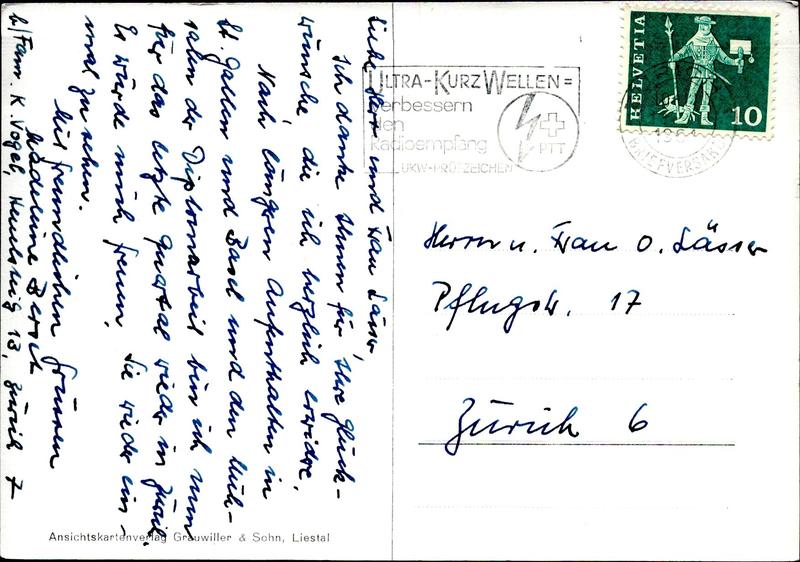 Liebe Herr und Frau Lässer,
Ich danke Ihnen für Ihre Glück-
wünsche die ich herzlich erwidre.
Nach längren Aufenthalten in
St. Gallen und Basel und den Müh-
sahn der Diplomarbeit bin ich nun
für das letzte Quartal wieder in Zürich.
Es würde mich freuen, Sie wieder ein-
mal zu sehen.
Mit freundlichen Grüssen
Madeleine
b/Fam. K. Vogel, 13, Zürich 7
Ansichtskartenverlag Grauwiller & Sohn, Liestal
ULTRA-KURZWELLEN=
verbessern
den
Radioempfang
UKW-PRÜFZEICHEN
PTT
HELVETIA
10
BRIEFVERSAND
Herrn u. Frau O. Lässer
Pflugstr. 17
Zürich 6